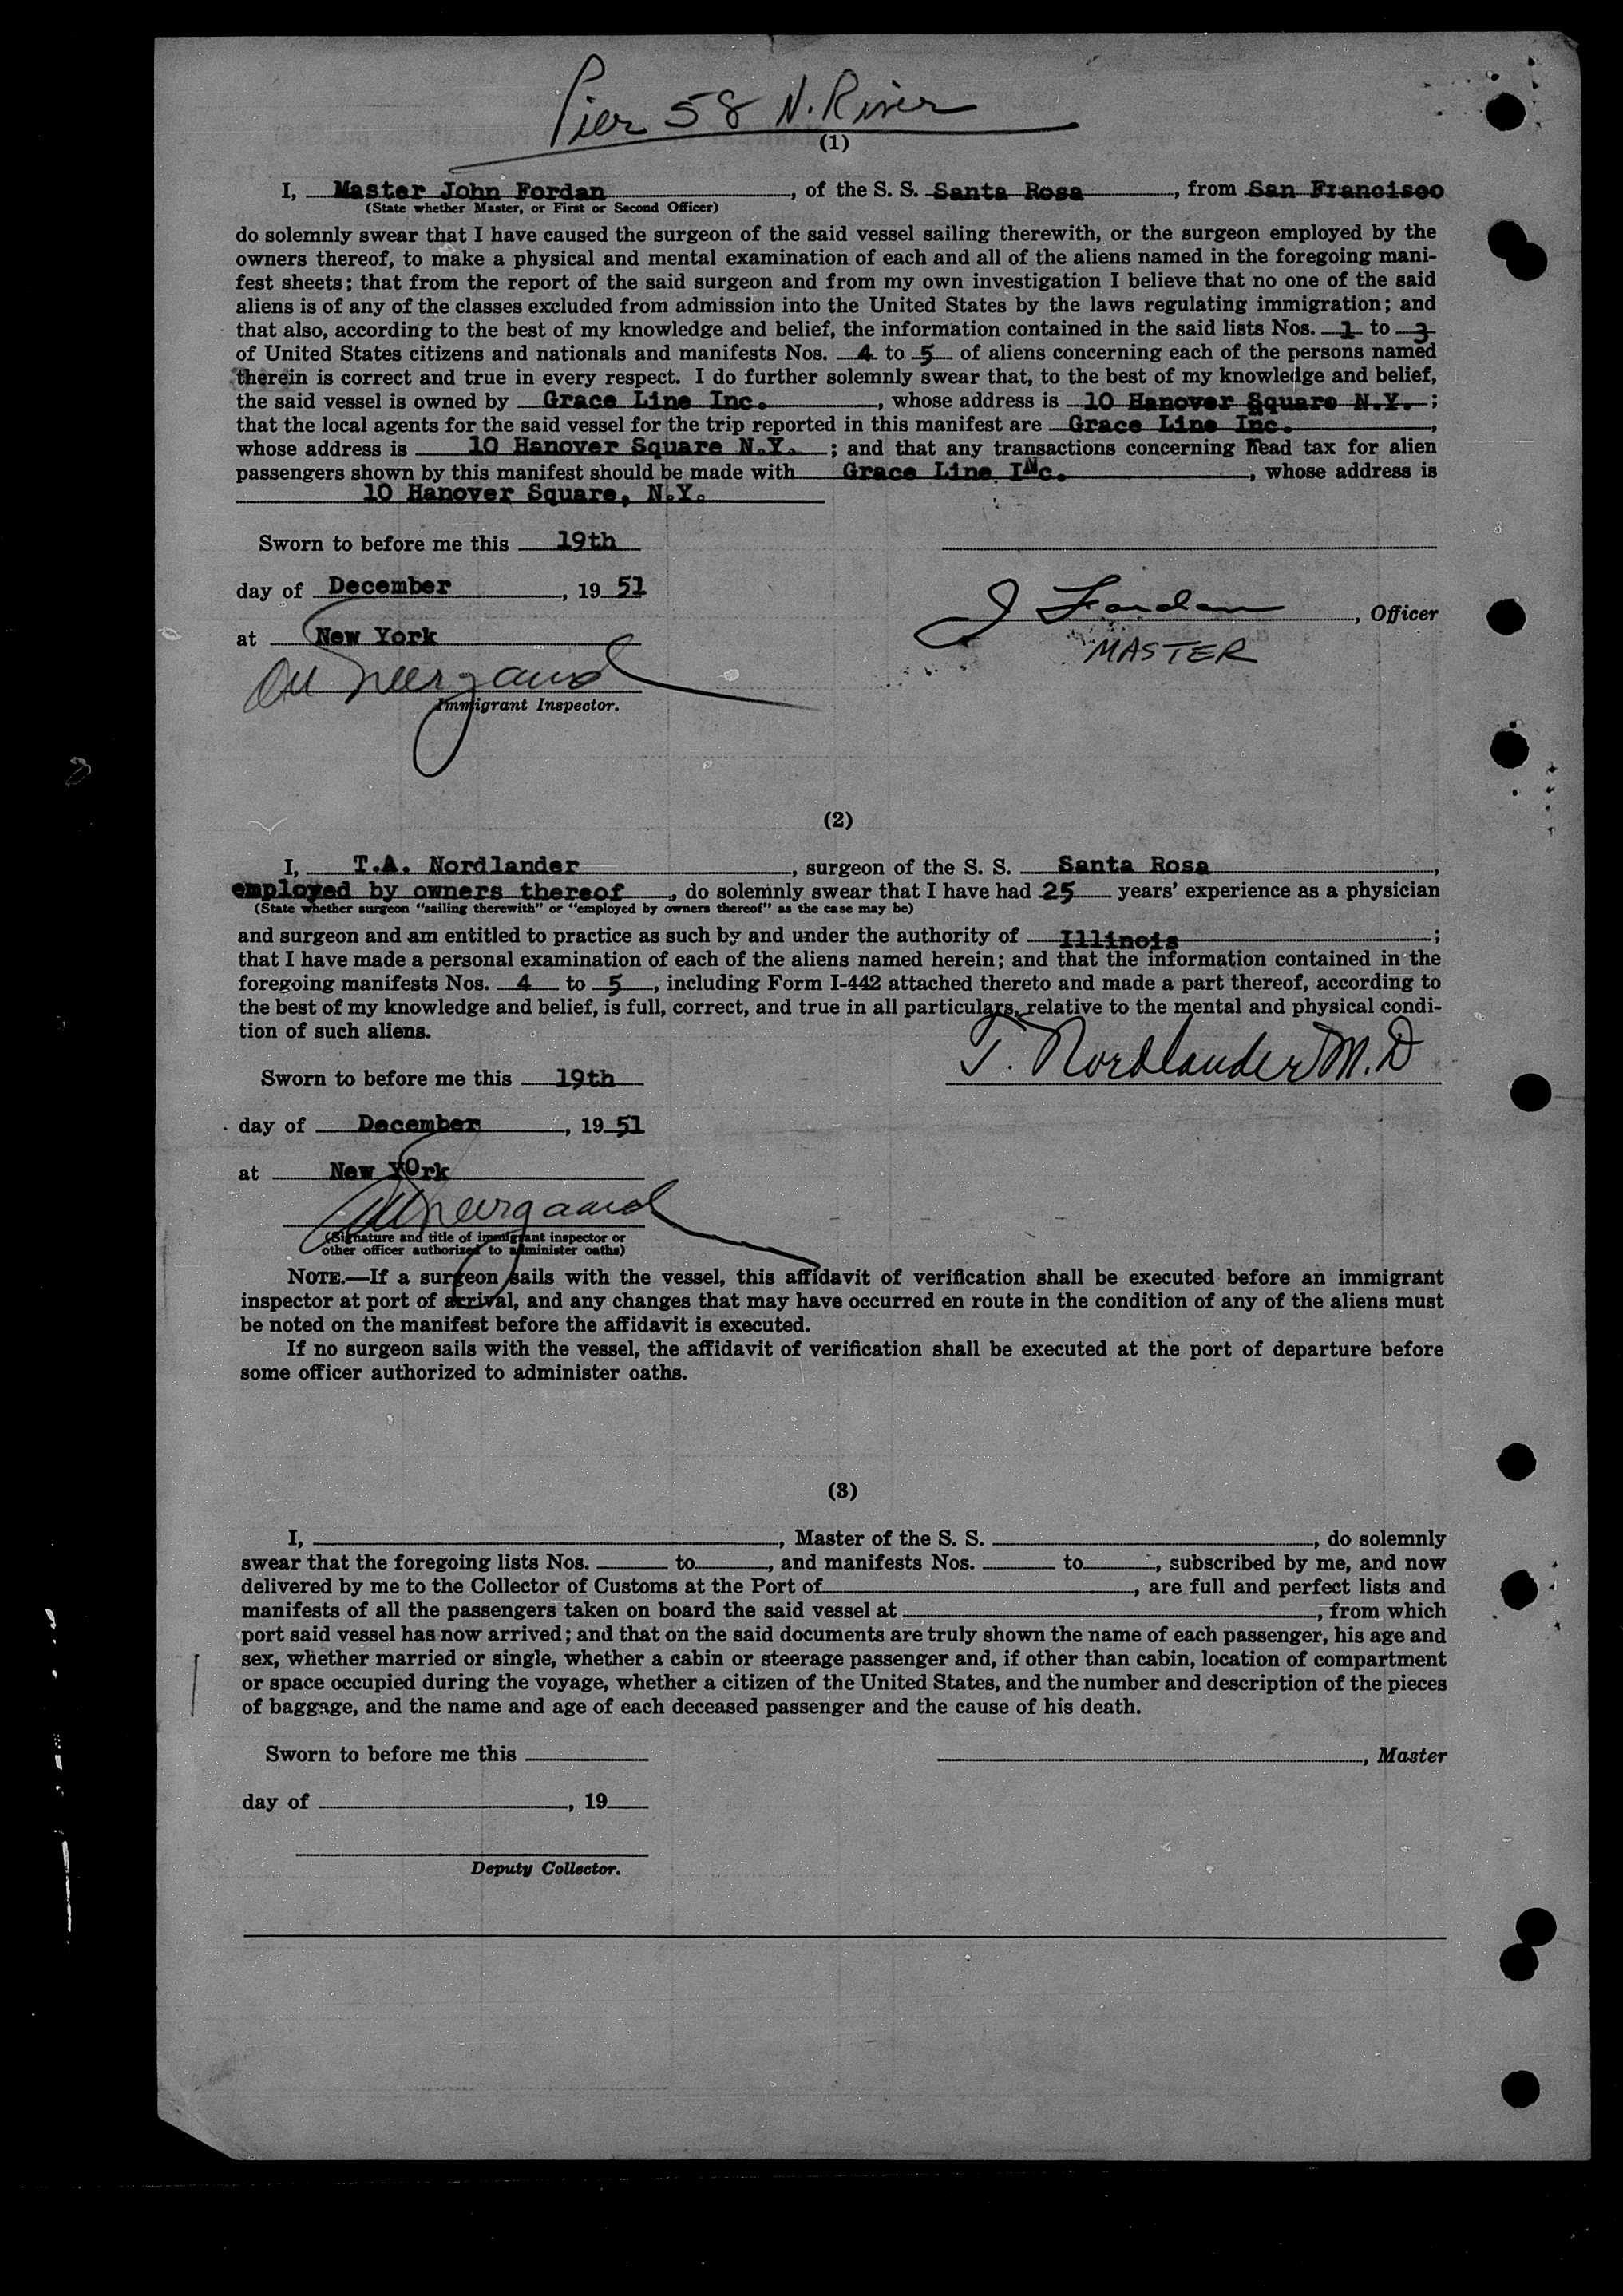 Pier 58 N. River
(1)
I, Master John Fordan, of the S. S. Santa Rosa, from San Francisco
(State whether Master, or First or Second Officer)
do solemnly swear that I have caused the surgeon of the said vessel sailing therewith, or the surgeon employed by the
owners thereof, to make a physical and mental examination of each and all of the aliens named in the foregoing mani-
fest sheets; that from the report of the said surgeon and from my own investigation I believe that no one of the said
aliens is of any of the classes excluded from admission into the United States by the laws regulating immigration; and
that also, according to the best of my knowledge and belief, the information contained in the said lists Nos. 1 to 3
of United States citizens and nationals and manifests Nos. 4 to 5 of aliens concerning each of the persons named
therein is correct and true in every respect. I do further solemnly swear that, to the best of my knowledge and belief,
the said vessel is owned by Grace Line Inc., whose address is 10 Hanover Square N.Y.;
that the local agents for the said vessel for the trip reported in this manifest are Grace Line Inc.,
whose address is 10 Hanover Square N.Y.; and that any transactions concerning head tax for alien
passengers shown by this manifest should be made with Grace Line INc., whose address is
10 Hanover Square, N.Y.
Sworn to before me this 19th
day of December, 19 51
J Fordan, Officer
at New York
MASTER
Immigrant Inspector.
(2)
I, T.A. Nordlander, surgeon of the S. S. Santa Rosa,
employed by owners thereof, do solemnly swear that I have had 25 years' experience as a physician
(State whether surgeon "sailing therewith" or "employed by owners thereof" as the case may be)
and surgeon and am entitled to practice as such by and under the authority of Illinois;
that I have made a personal examination of each of the aliens named herein; and that the information contained in the
foregoing manifests Nos. 4 to 5, including Form I-442 attached thereto and made a part thereof, according to
the best of my knowledge and belief, is full, correct, and true in all particulars, relative to the mental and physical condi-
tion of such aliens.
T. Nordlander M.D
Sworn to before me this 19th
day of December, 19 51
at New YOrk
(Signature and title of immigrant inspector or
other officer authorized to administer oaths)
NOTE.—If a surgeon sails with the vessel, this affidavit of verification shall be executed before an immigrant
inspector at port of arrival, and any changes that may have occurred en route in the condition of any of the aliens must
be noted on the manifest before the affidavit is executed.
If no surgeon sails with the vessel, the affidavit of verification shall be executed at the port of departure before
some officer authorized to administer oaths.
(3)
I, , Master of the S. S. , do solemnly
swear that the foregoing lists Nos. to , and manifests Nos. to , subscribed by me, and now
delivered by me to the Collector of Customs at the Port of , are full and perfect lists and
manifests of all the passengers taken on board the said vessel at , from which
port said vessel has now arrived; and that on the said documents are truly shown the name of each passenger, his age and
sex, whether married or single, whether a cabin or steerage passenger and, if other than cabin, location of compartment
or space occupied during the voyage, whether a citizen of the United States, and the number and description of the pieces
of baggage, and the name and age of each deceased passenger and the cause of his death.
Sworn to before me this
, Master
day of , 19
Deputy Collector.